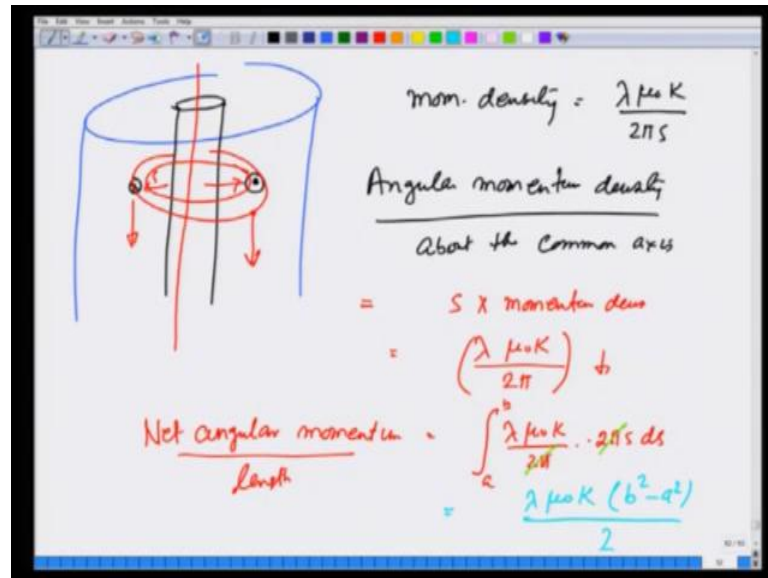 File Edit View Insert Actions Tools Help
mom. density = λ μ₀ K / 2π s
Angular momentum density
about the common axis
= s x momentum dens
= (λ μ₀ K / 2π)
Net angular momentum / length = ∫ₐᵇ λ μ₀ K / 2π · 2π s ds
= λ μ₀ K (b² - a²) / 2